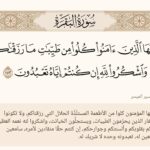 سُورَةُ البَقَرَةِ
يَا أَيُّهَا الَّذِينَ ءَامَنُوا كُلُوا مِن طَيِّبَٰتِ مَا رَزَقْنَٰكُمْ
وَاشْكُرُوا لِلَّهِ إِن كُنتُمْ إِيَّاهُ تَعْبُدُونَ
المؤمنون كلوا من الأطعمة المستلَذَّة الحلال التي رزقناكم، ولا تكونوا
الذين يحرمون الطيبات، ويستحلُّون الخبائث، واشكروا لله نعمه
عليكم بقلوبكم وألسنتكم وجوارحكم، إن كنتم حقًا منقادين لأمره، سامعين
له، تعبدونه وحده لا شريك له.